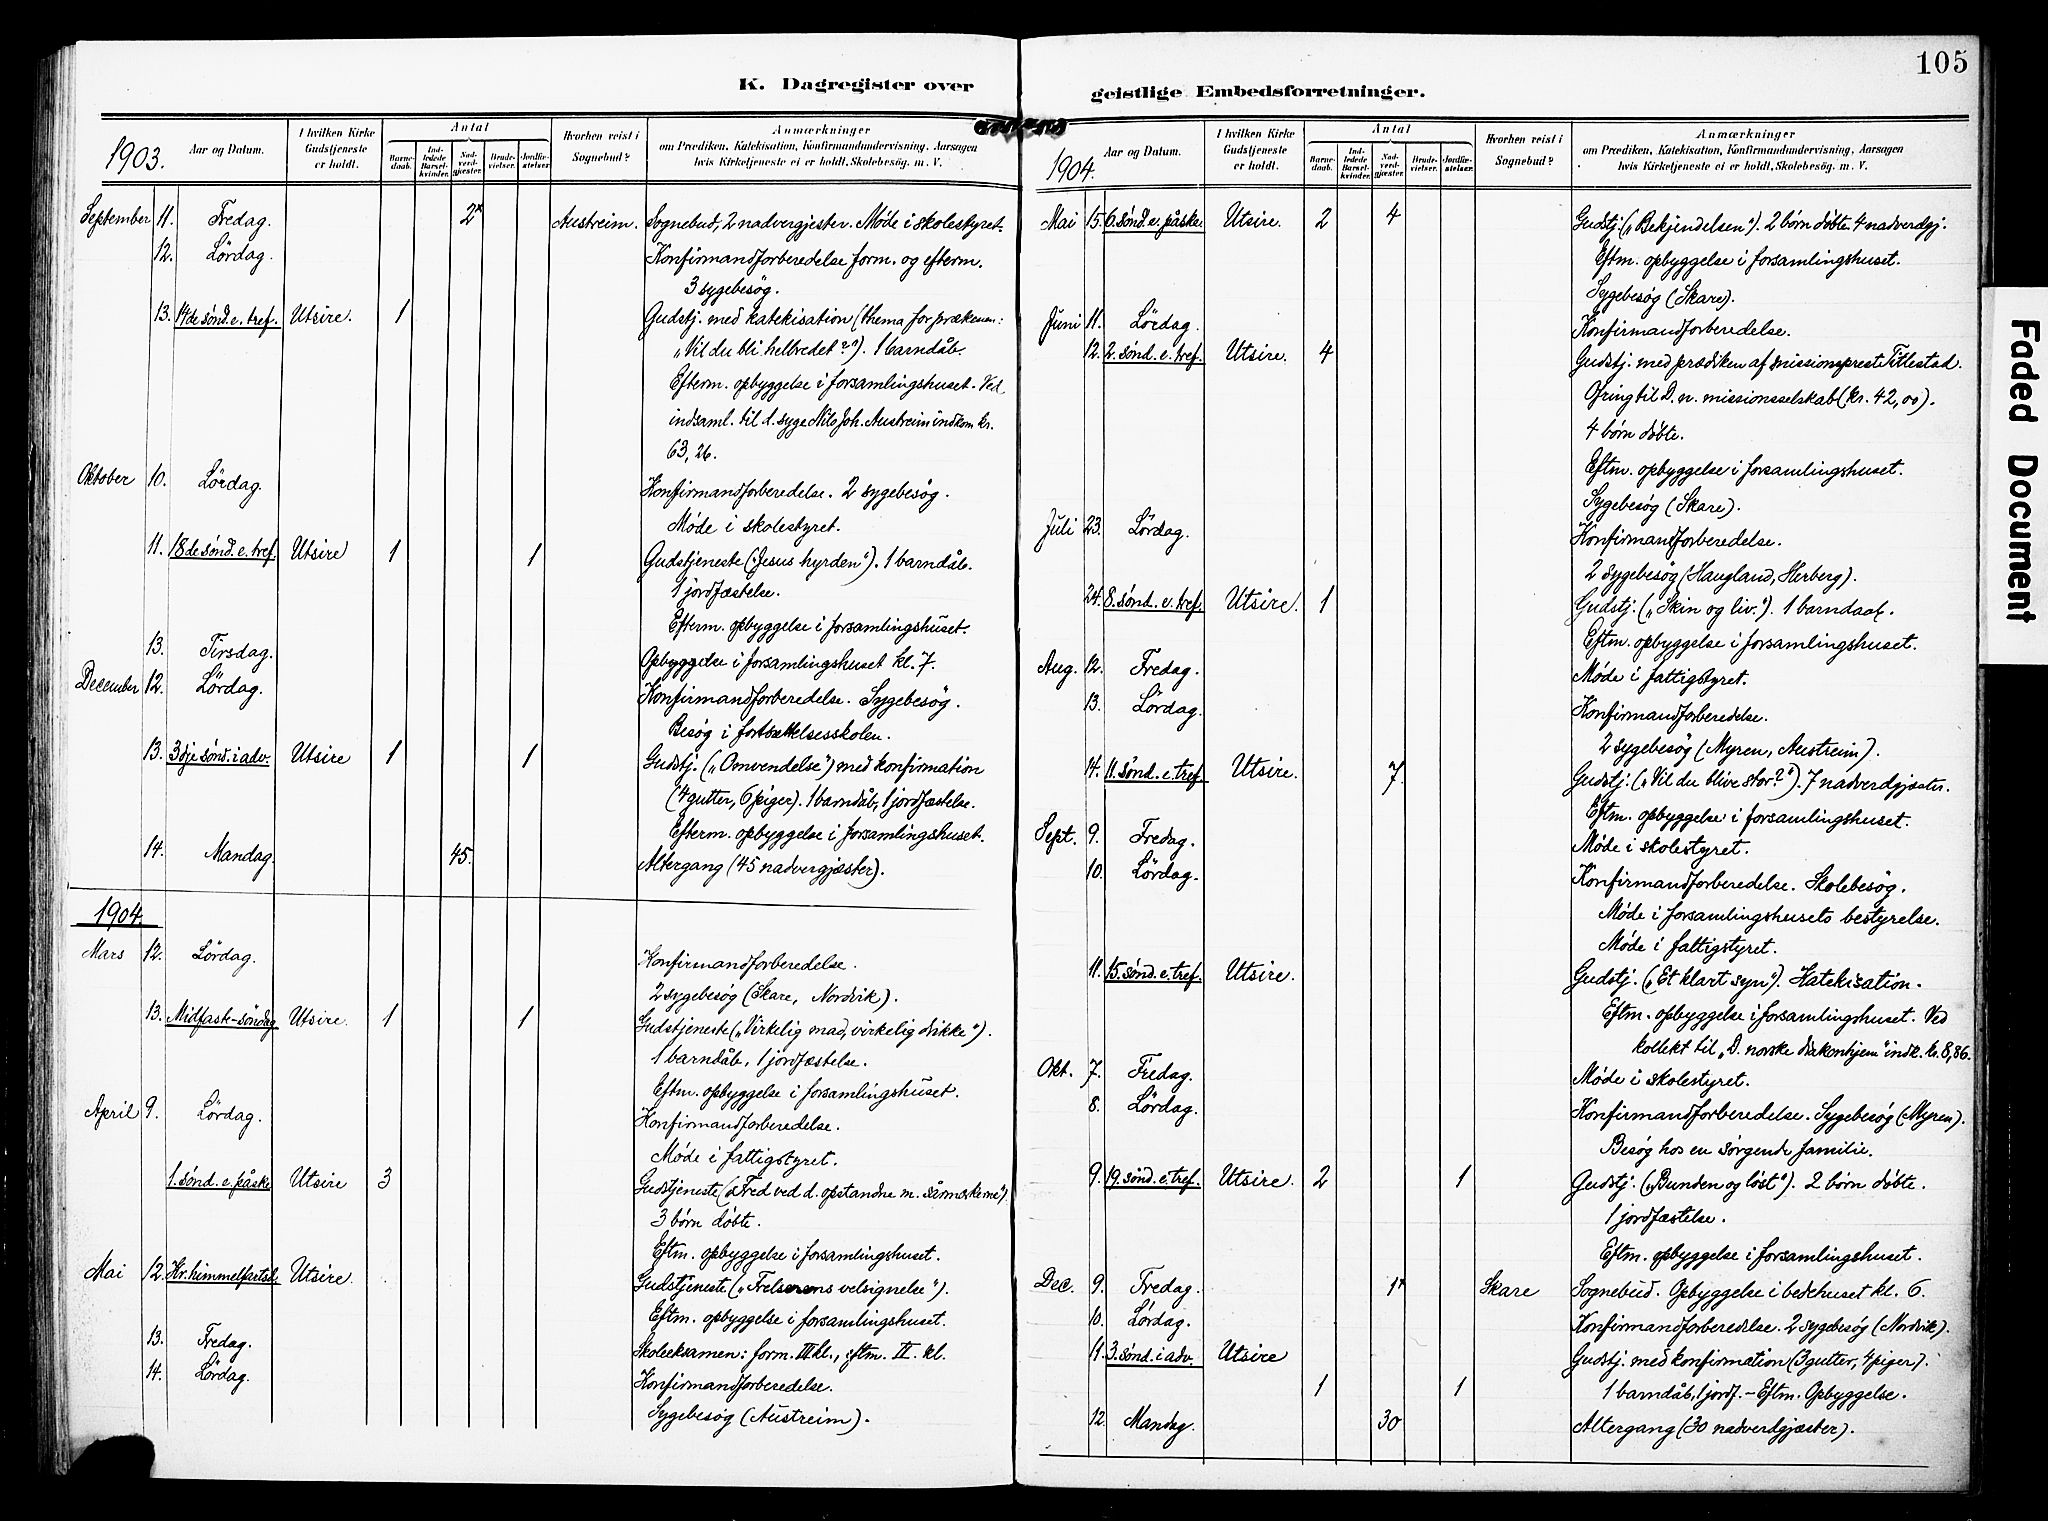 105
K. Dagregister over
geistlige Embedsforretninger.
Faded Document
1903.
Aar og Datum.
I hvilken Kirke Gudstjeneste er holdt.
Antal
Barnedaab.
Indledede Barselkvinder.
Nadverdgjæster.
Brudevielser.
Jordfæstelser.
Hvorhen reist i Sognebud?
Anmærkninger
om Prædiken, Katekisation, Konfirmandundervisning, Aarsagen
hvis Kirketjeneste ei er holdt, Skolebesøg. m. V.
September 11. Fredag. 2x Austreim. Sognebud, 2 nadvergjester. Møde i skolestyret.
12. Lördag. Konfirmandforberedelse form. og efterm.
3 sygebesøg.
13. 14de sønd. e. tref. Utsire. 1 Gudstj. med katekisation (thema for prækenen:
"Vil du bli helbredet?"). 1 barndåb.
Efterm. opbyggelse i forsamlingshuset. Ved
indsaml. til d. syge Nils Joh. Austreim indkom kr.
63,26.
Oktober 10. Lördag. Konfirmandforberedelse. 2 sygebesøg.
Møde i skolestyret.
11. 18de sønd. e. tref. Utsire 1 1 Gudstjeneste ("Jesus hyrden"). 1 barndåb.
1 jordfæstelse.
Efterm. opbyggelse i forsamlingshuset.
13. Tirsdag. Opbyggelse i forsamlingshuset kl. 7.
December 12. Lördag. Konfirmandforberedelse. Sygebesøg.
Besøg i fortsættelsesskolen.
13. 3dje sønd. i adv. Utsire 1 1 Gudstj. ("Omvendelse") med konfirmation
(4 gutter, 6 piger). 1 barndåb, 1 jordfæstelse.
Efterm. opbyggelse i forsamlingshuset.
14. Mandag. 45. Altergang (45 nadvergjæster).
1904.
Mars 12. Lördag. Konfirmandforberedelse.
2 sygebesøg (Skare, Nordvik).
13. Midfaste-söndag Utsire. 1 1 Gudstjeneste ("Virkelig mad, virkelig drikke").
1 barndåb, 1 jordfæstelse.
Eftm. opbyggelse i forsamlingshuset.
April 9. Lördag. Konfirmandforberedelse.
Møde i fattigstyret.
1. sønd. e. påske Utsire 3 Gudstjeneste ("Fred ved d. opstandne m. sårmærkerne").
3 børn døbte.
Eftm. opbyggelse i forsamlingshuset.
Mai 12. Kr. himmelfartsd. Utsire. Gudstjeneste ("Frelserens velsignelse").
Eftm. opbyggelse i forsamlingshuset.
13. Fredag. Skoleeksamen: form. III kl., eftm. II. kl.
14. Lördag. Konfirmandforberedelse.
Sygebesøg (Austreim).
1904.
Aar og Datum.
I hvilken Kirke Gudstjeneste er holdt.
Antal
Barnedaab.
Indledede Barselkvinder.
Nadverdgjæster.
Brudevielser.
Jordfæstelser.
Hvorhen reist i Sognebud?
Anmærkninger
om Prædiken, Katekisation, Konfirmandundervisning, Aarsagen
hvis Kirketjeneste ei er holdt, Skolebesøg. m. V.
Mai 15. 6. sønd. e. påske. Utsire. 2 4 Gudstj. ("Bekjendelsen"). 2 børn døbte. 4 nadverdgj.
Eftm. opbyggelse i forsamlingshuset.
Sygebesøg (Skare).
Juni 11. Lördag. Konfirmandforberedelse.
12. 2. sønd. e. tref. Utsire. 4 Gudstj. med prædiken af missionsprest Titlestad.
Ofring til D. n. missionsselskab (kr. 42,00).
4 børn døbte.
Eftm. opbyggelse i forsamlingshuset.
Sygebesøg (Skare).
Juli 23. Lördag. Konfirmandforberedelse.
2 sygebesøg (Haugland, Herberg).
24. 8. sønd. e. tref. Utsire. 1 Gudstj. ("Skin og liv."). 1 barndaab.
Eftm. opbyggelse i forsamlingshuset.
Aug. 12. Fredag. Møde i fattigstyret.
13. Lördag. Konfirmandforberedelse.
2 sygebesøg (Myren, Austreim).
14. 11. sønd. e. tref. Utsire. 7. Gudstj. ("Vil du blive stor?"). 7 nadverdgjæster.
Eftm. opbyggelse i forsamlingshuset.
Sept. 9. Fredag. Møde i skolestyret.
10. Lördag. Konfirmandforberedelse. Skolebesøg.
Møde i forsamlingshusets bestyrelse.
Møde i fattigstyret.
11. 15. sønd. e. tref. Utsire. Gudstj. ("Et klart syn"). Katekisation.
Eftm. opbyggelse i forsamlingshuset. Ved
kollekt til "D. norske diakonhjem" indk. kr. 8,86.
Okt. 7. Fredag. Møde i skolestyret.
8. Lördag. Konfirmandforberedelse. Sygebesøg (Myren).
Besøg hos en sørgende familie.
9. 19. sønd. e. tref. Utsire. 2 1 Gudstj. ("Bunden og løst"). 2 børn døbte.
1 jordfæstelse.
Eftm. opbyggelse i forsamlingshuset.
Dec. 9. Fredag. 1x Skare Sognebud. Opbyggelse i bedehuset kl. 6.
10. Lördag. Konfirmandforberedelse. 2 sygebesøg (Nordvik).
11. 3. sønd. i adv. Utsire Gudstj. med konfirmation (3 gutter, 4 piger).
1 1 1 barndåb, 1 jordf. – Eftm. Opbyggelse.
12. Mandag. 30 Altergang (30 nadverdgjæster).